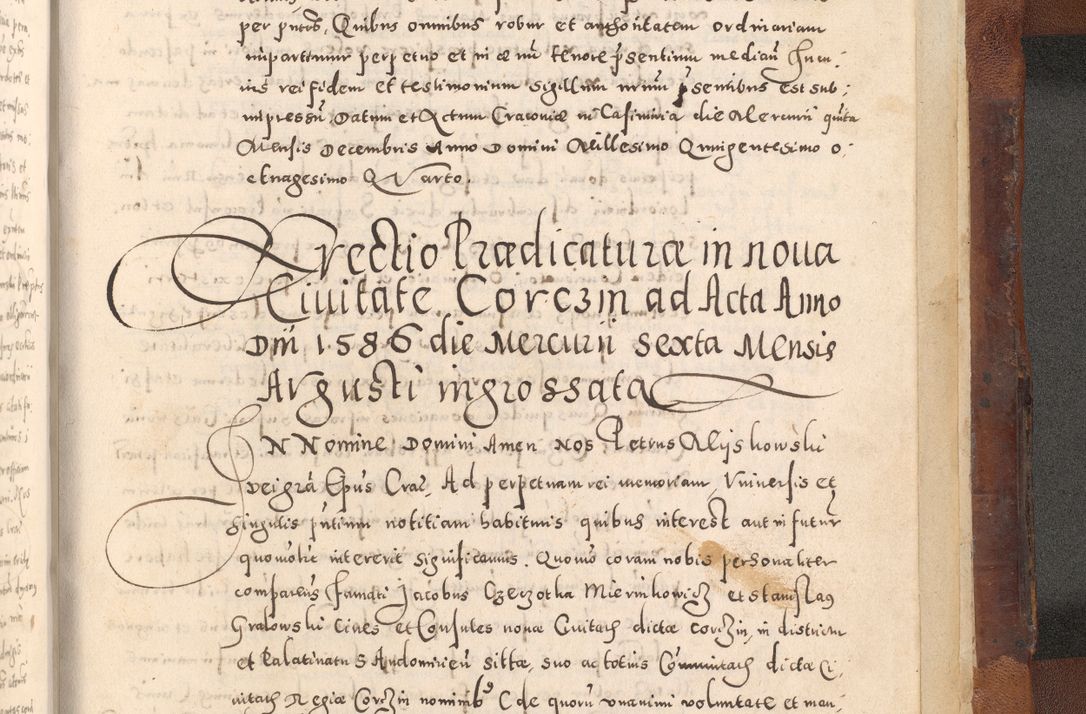 per pntes, Quibus omnibus robur et authoritatem ordinariam
impartimur perpetuo et in æ nū tenore psentium mediaū Cuiu:
ius rei fidem et testimonium Sigillum nrum psentibus est sub:
impressū, Datum et Actum Cracoviæ in Casimiria die Mercurii quita
Mensis Decembris Anno Domini Millesimo Quingentesimo o:
ctuagesimo Quarto.
Erectio Prædicaturæ in noua
Ciuitate Corczin ad Acta Anno
Dni 1586 die Mercurii Sexta Mensis
Augusti ingrossata
IN Nomine Domini Amen Nos Petrus Miiskowski
Dei grā Epūs Crac, Ad perpetuam rei memoriam, Vniuersis et
singulis pntium notitiam habituris quibus interest aut in futur
quomolit intererit significamus. Quomō coram nobis personaliter
comparens famati Jacobus Czeczotka Mierinkowicz et Stanislaus
Gralowski Ciues et Consules nouæ Ciuitatis dictæ Corczin, in districtu
et Palatinatu Sandomirień sittæ, suo ac totius Cōmunitatis dictæ Ci:
uitatis Regiæ Corczin nominib9 C de quorū vnanimi voluntate et man: